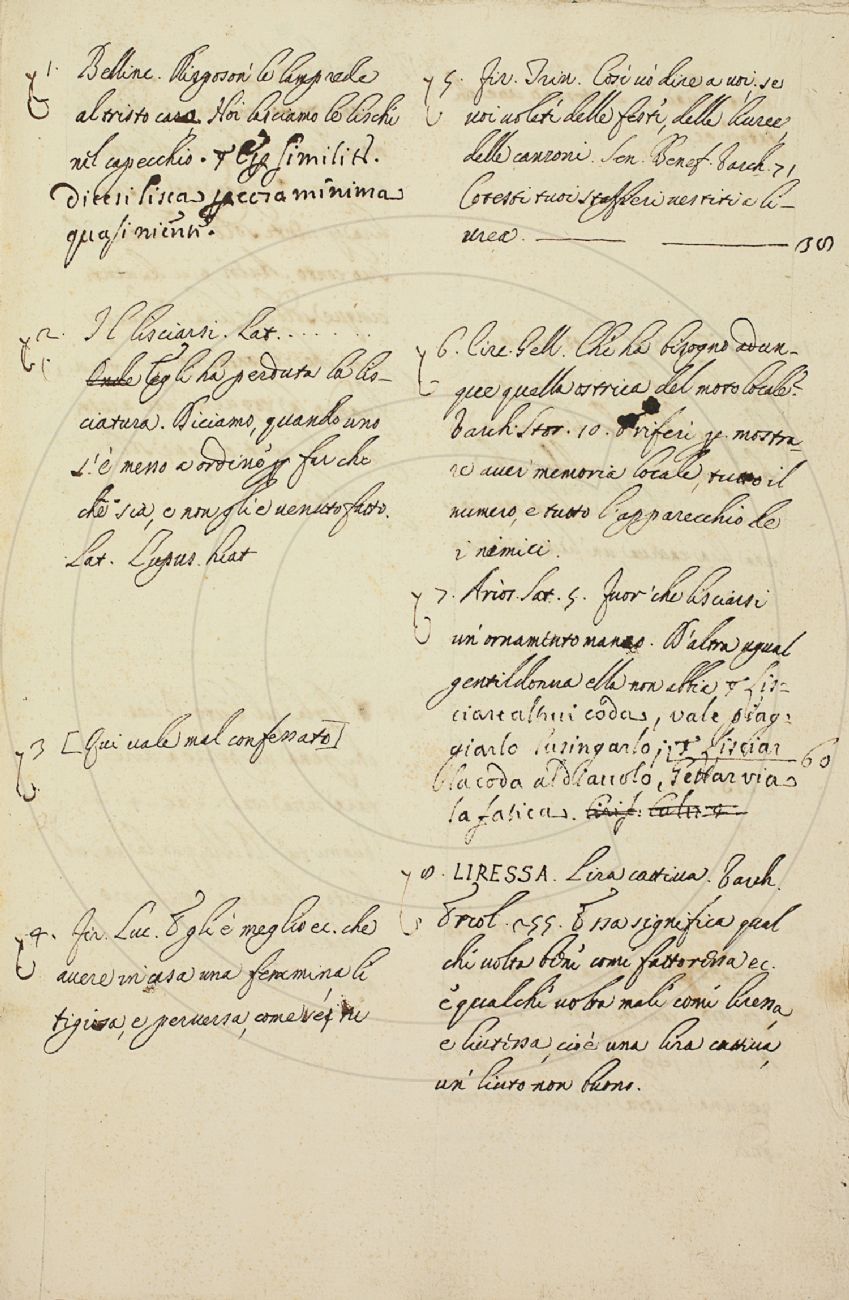 1. Bellinc. Ringoson le lamprede
al tristo caso. Noi lasciamo le lische
nel capecchio. similit.
dicesi lisca minima
quasi niente.
2. Il lisciarsi. Lat. . . . . . . .
Onde Egli ha perduta la lis-
ciatura. Diciamo, quando uno
s'è messo a ordine p far che
che sia, e non gli è venuto fatto.
Lat. Lupus hiat
3 [Qui vale mal confessato]
4. Fir. Luc. Egli è meglio ec. che
avere in casa una femmina li
tigiosa, e perversa, come
5. Fir. Trin. Così vò dire a voi, se
voi volete delle feste, delle livree,
delle canzoni. Sen. Benef. Varch. 71
Cotesti tuoi staffieri vestiti a li-
vrea.
6. Circ. Gell. Chi ha bisogno adun-
que quella ostrica del moto locale?
Varch. Stor. 10. riferì p mostra-
re aver memoria locale, tutto il
numero, e tutto l'apparecchio de
i nemici.
7. Arios. Sat. 5. Fuor che lisciarsi
un ornamento manco. D'altra ugual
gentildonna ella non abbia Lis-
ciare altrui coda, vale piag-
giarlo lusingarlo; Lisciar
la coda al diavolo, Gettar via
la fatica. Cirif. Calv. 60
8. LIRESSA. Lira cattiva. Varch.
Ercol. 255. Essa significa qual
che volta bene come fattoressa ec.
e qualche volta male come liressa,
e liutessa, cioè una lira cattiva,
un liuto non buono.